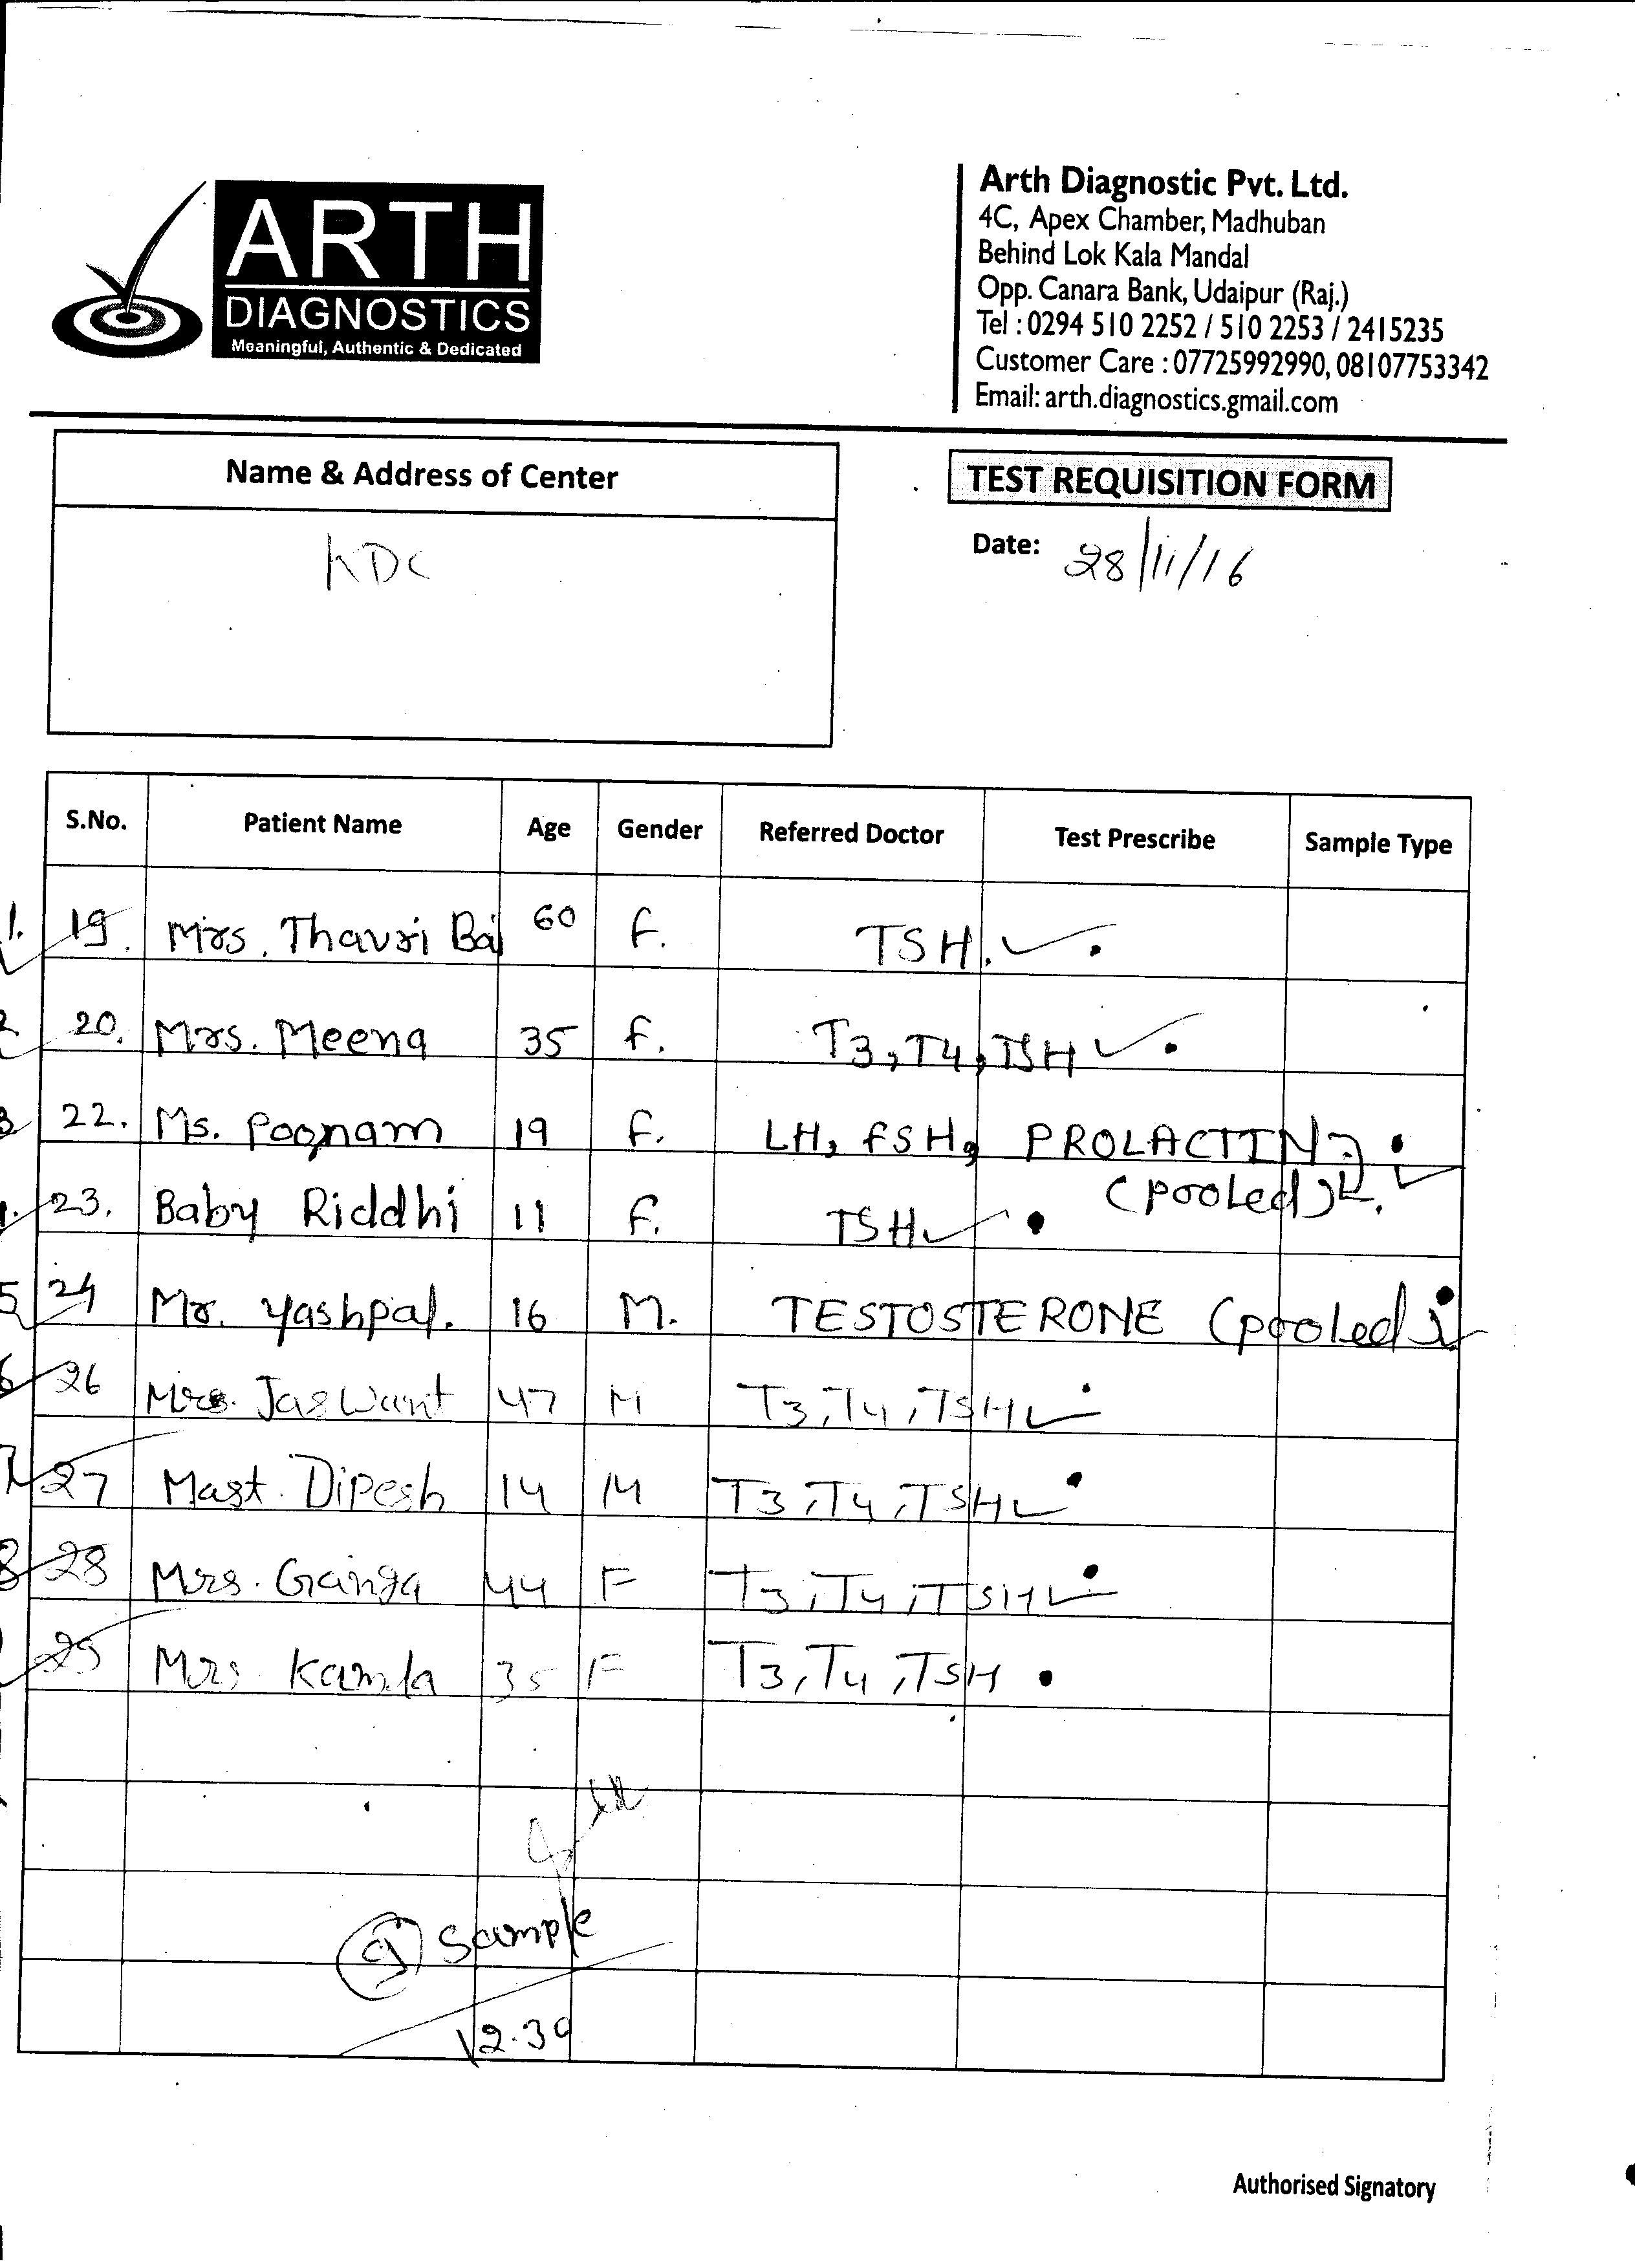 ARTH
DIAGNOSTICS
Meaningful, Authentic & Dedicated
Arth Diagnostic Pvt. Ltd.
4C, Apex Chamber, Madhuban
Behind Lok Kala Mandal
Opp. Canara Bank, Udaipur (Raj.)
Tel : 0294 510 2252 / 510 2253 / 2415235
Customer Care : 07725992990, 08107753342
Email: arth.diagnostics.gmail.com
Name & Address of Center
KDC
TEST REQUISITION FORM
Date: 28/11/16
S.No. Patient Name Age Gender Referred Doctor Test Prescribe Sample Type
1. 19. Mrs. Thavri Bai 60 F. TSH.
2 20. Mrs. Meena 35 F. T3, T4, TSH
3 22. Ms. Poonam 19 F. LH, FSH, PROLACTIN
(pooled)
23. Baby Riddhi 11 F. TSH
5 24 Mr. Yashpal. 16 M. TESTOSTERONE (pooled)
6 26 Jaswant 47 M T3, T4, TSH
7 27 Mast. Dipesh 14 M T3, T4, TSH
8 28 Mrs. Ganga 44 F T3, T4, TSH
29 Mrs. Kamla 35 F T3, T4, TSH
9 Sample
12.30
Authorised Signatory